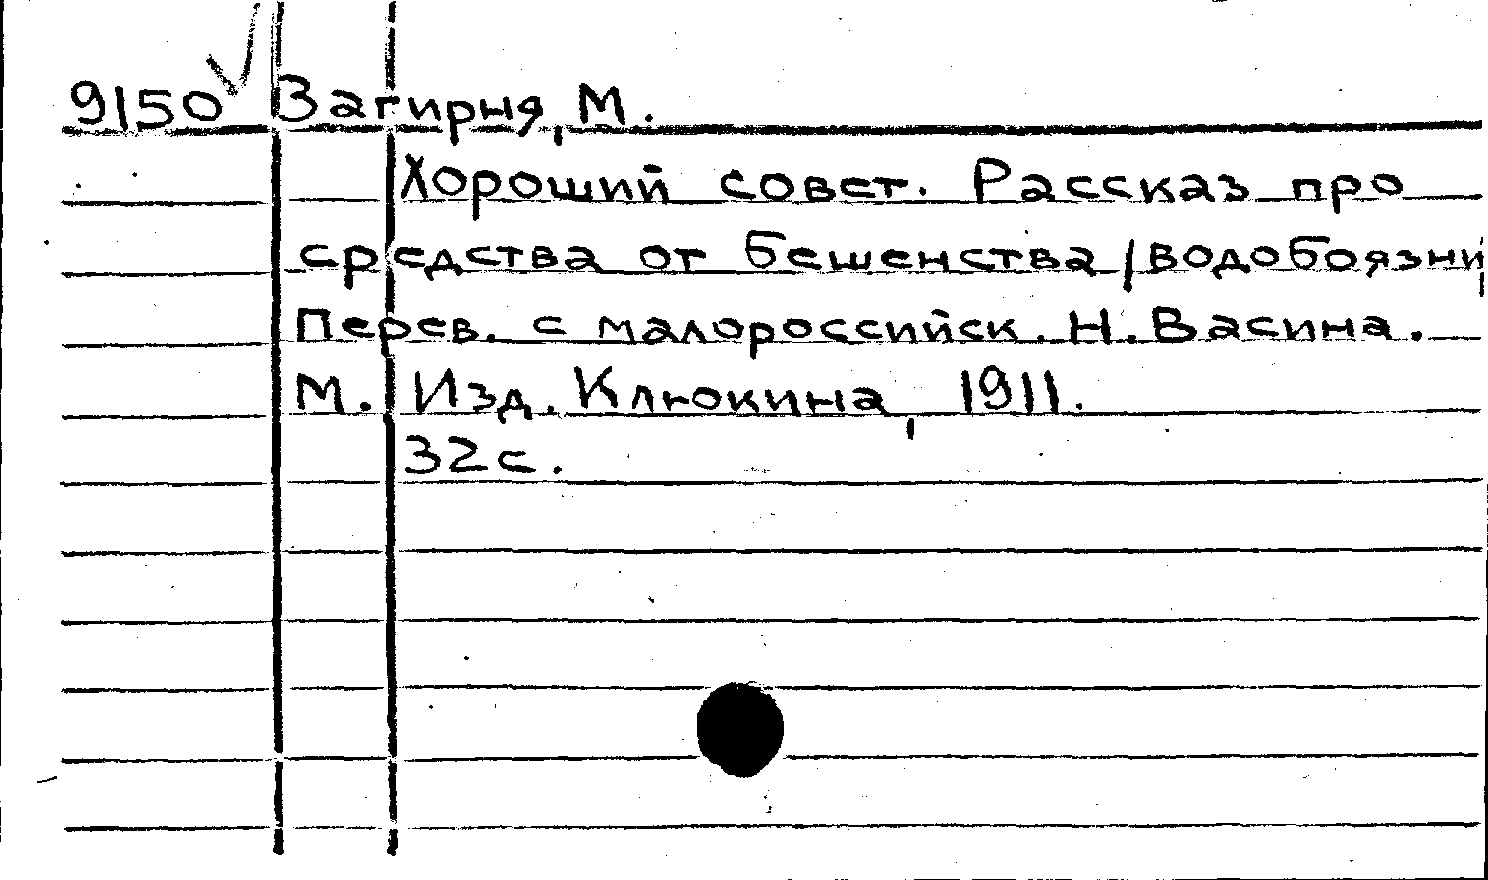 9150 Загирня, М.
Хороший совет. Рассказ про
средства от бешенства /водобоязни
Перев. с малороссийск. Н. Васина.
М. Изд. Клюкина, 1911.
32 с.